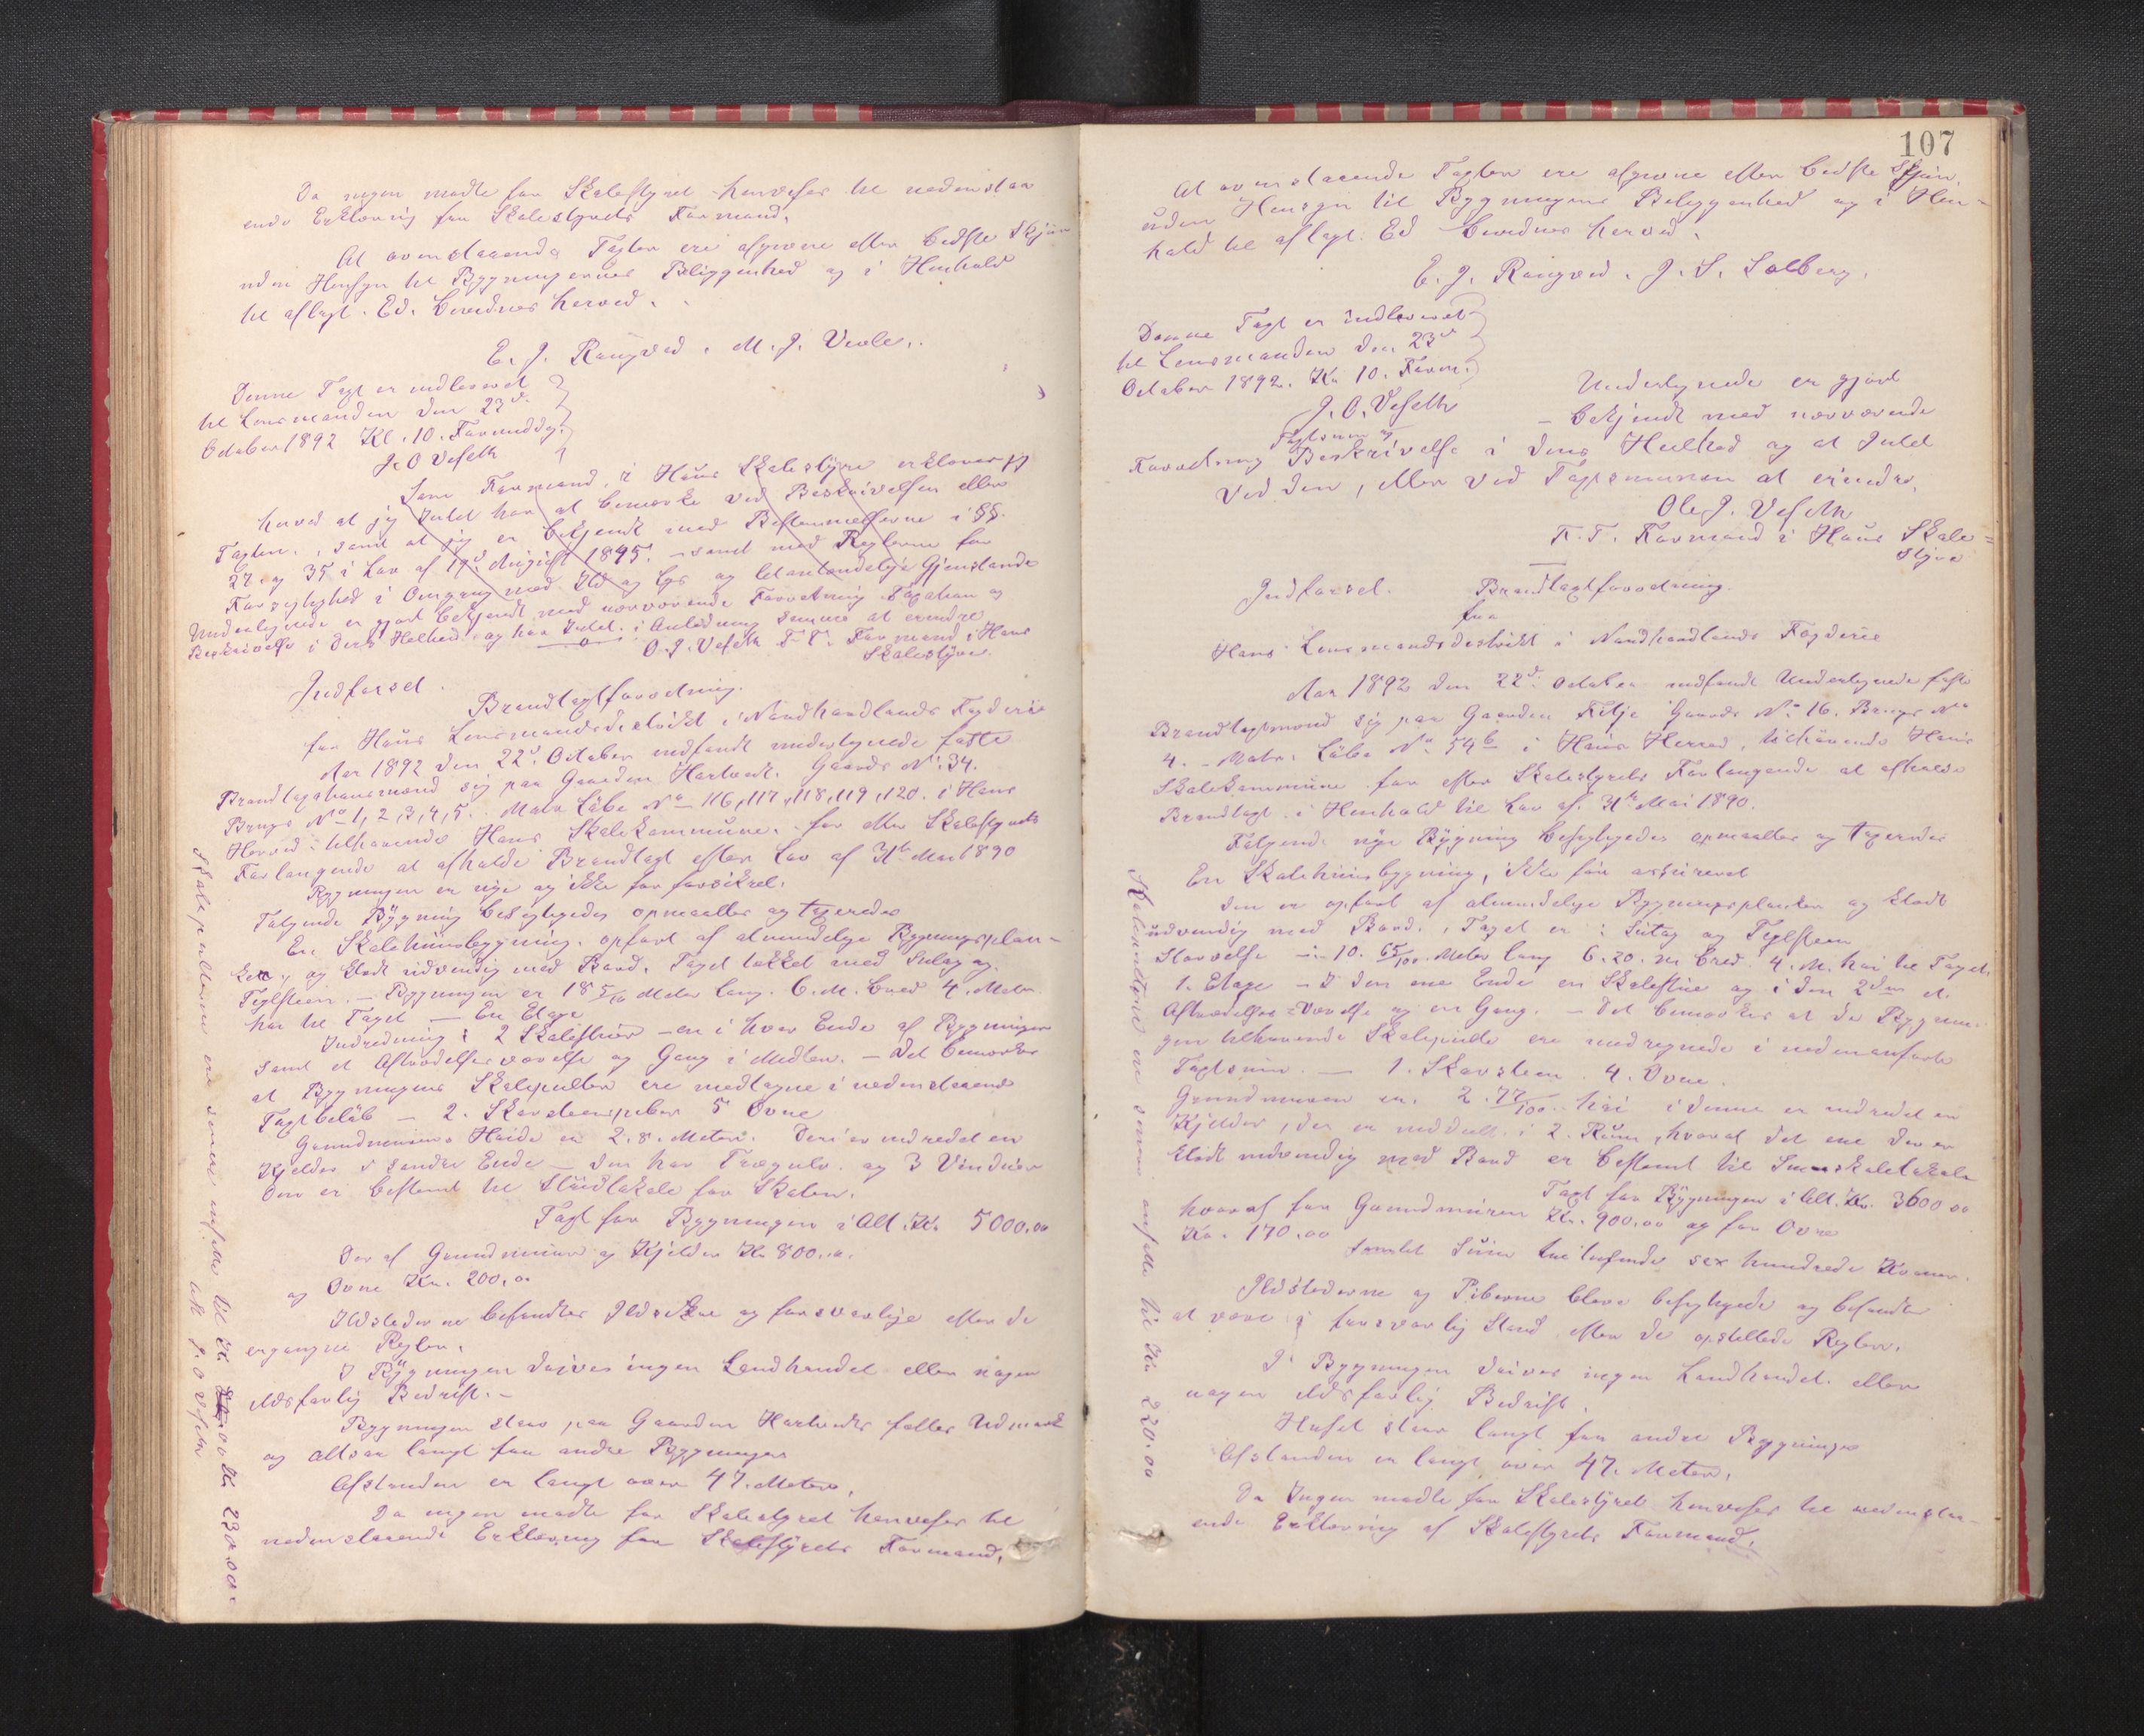 Da ingen mødte for Skolestyret henvises til nedenstaa
ende Erklæring fra Skolestyrets Formand.
At ovenstaaende Taxter ere afgivne efter bedste Skjøn
uden Hensyn til Bygningernes Beliggenhed og i Henhold
til aflagt Ed. bevidnes herved.
E. J. Rongved. M. J. Vevle.
Denne Taxt er indleveret
til Lensmanden den 23d
October 1892 Kl. 10. Formiddg.
J. O Vefeth
Som Formand i Haus Skolestyre erklæres
herved at jeg Intet har at bemærke ved Beskrivelsen eller
Taxten, samt at jeg er bekjendt med Bestemmelserne i §§.
27 og 35 i Lov af 19d August 1895. samt med Reglerne for
Forsigtighed i Omgang med Ild og Lys og letantændelige Gjenstande
Undertegnede er gjort bekjendt med nærværende Forretning Taxation og
Beskrivelse i dens Helhed og har Intet i Anledning Samme at erindre
O. J. Vefeth F. T. Formand i Haus
Skolestyre.
Indførsel.
Brandtaxtforretning.
fra Haus Lensmandsdistrikt i Nordhordlands Fogderie
Aar 1892 den 22d October indfandt undertegnede faste
Brandtaxationsmænd sig paa Gaarden Hartvedt. Gaards No. 34.
Brugs No 1, 2, 3, 4, 5. Matr Løbe No 116, 117, 118, 119, 120. i Haus
Herred tilhørende Haus Skolekommune. for efter Skolestyrets
Forlangende at afholde Brandtaxt efter Lov af 31te Mai 1890
Bygningen er nye og ikke før forsikret.
Følgende Bygning besigtigedes opmaaltes og taxeredes
En Skolehuusbygning. opført af almindelige Bygningsplan-
ker, og klædt udvendig med Bord. Taget tækket med Sutag og
Teglsteen. – Bygningen er 18 5/10 Meter lang. 6. M. bred 4. Meter
høi til Taget — En Etage
Indredning: 2 Skolestuer – en i hver Ende af Bygningen
samt et Aftrædelsesværelse og Gang i Midten. – Det bemærkes
at Bygningens Skolepulter ere medtagne i nedenstaaende
Taxtbeløb — 2. Skorsteenspiber 5 Ovne
Grundmurens Høide er 2.8. Meter. Deri er indredet en
Kjelder i søndre Ende – den har Trægulv. og 3 Vinduer
Den er bestemt til Sløidlokale for Skolen.
Taxt for Bygningen i Alt. Kr. 5000,00
Der af Grundmuren og Kjelder Kr 800,00.
og Ovne Kr. 200,00
Ildstederne befandtes Ildsikre og forsvarlige efter de
ergangne Regler.
I Bygningen drives ingen Landhandel eller nogen
ildsfarlig Bedrift. –
Bygningen staar paa Gaarden Hartvedts fælles Udmark
og altsaa langt fra andre Bygninger
Afstanden er langt over 47. Meter.
Da ingen mødte for Skolestyret henvises til
nedenstaaende Erklæring fra Skolestyrets Formand.
Skolepulterne ere senere ansatte til Kr. 230.00
J. O Vefeth
107
At ovenstaaende Taxter ere afgivne efter bedste Skjøn.
uden Hensyn til Bygningens Beliggenhed og i Hen-
hold til aflagt Ed bevidnes herved.
E. J. Rongved. J. S. Solberg.
Denne Taxt er indleveret
til Lensmanden den 23d
October 1892. Kl 10. Form.
J. O. Vefeth
Undertegnede er gjort
bekjendt med nærværende
Taxtsum og
Forretning Beskrivelse i dens Heelhed og at Intet
ved den, eller ved Taxtsummen at erindre.
Ole J. Vefeth
F. T. Formand i Haus Skole=
styre
Indførsel. Brandtaxtforretning.
fra
Haus Lensmandsdistrikt i Nordhordlands Fogderie
Aar 1892 den 22d. October indfandt Undertegnede faste
Brandtaxtmænd sig paa Gaarden Fitje Gaards No. 16. Brugs No
4. Matr. Løbe No 54b i Haus Herred, tilhørende Haus
Skolekommune for efter Skolestyrets Forlangende at afholde
Brandtaxt i Henhold til Lov af. 31te Mai 1890.
Følgende nye Bygning besigtigedes opmaaltes og taxerdes
En Skolehuusbygning, ikke før assureret
Den er opført af almindelige Bygningsplanker og klædt
udvendig med Bord. Taget er i Sutag og Teglsteen
Størrelse – 10. 65/100 Meter lang 6.20. m bred. 4. M. høi til Taget.
1. Etage – I den ene Ende en Skolestue og i den 2den et
Aftrædelses=Værelse og en Gang. – Det bemærkes at de Bygnin-
gen tilhørende Skolepulte ere medregnede i nedenanførte
Taxtsum. — 1. Skorsteen. 4. Ovne.
Grundmuren er. 2. 77/100 høi i denne er indredet en
Kjelder, der er inddelt i 2. Rum, hvoraf det ene der er
klædt indvendig med Bord er bestemt til Smaaskolelokale
Taxt for Bygningen i Alt. Kr. 3600 00
hvoraf for Grundmuren Kr. 900,00 og for Ovne
Kr. 170,00
samlet Sum tre tusende sex hundrede Kroner.
Ildstederne og Piberne bleve besigtigede og befandtes
at være i forsvarlig Stand efter de opstillede Regler.
I Bygningen drives ingen Landhandel. eller
nogen ildsfarlig Bedrift.
Huset staar langt fra andre Bygninger
Afstanden er langt over 47. Meter.
Da Ingen mødte fra Skolestyret henvises til nedenstaa-
ende Erklæring af Skolestyrets Formand.
Skolepultene ere senere ansatte til Kr. 220.00